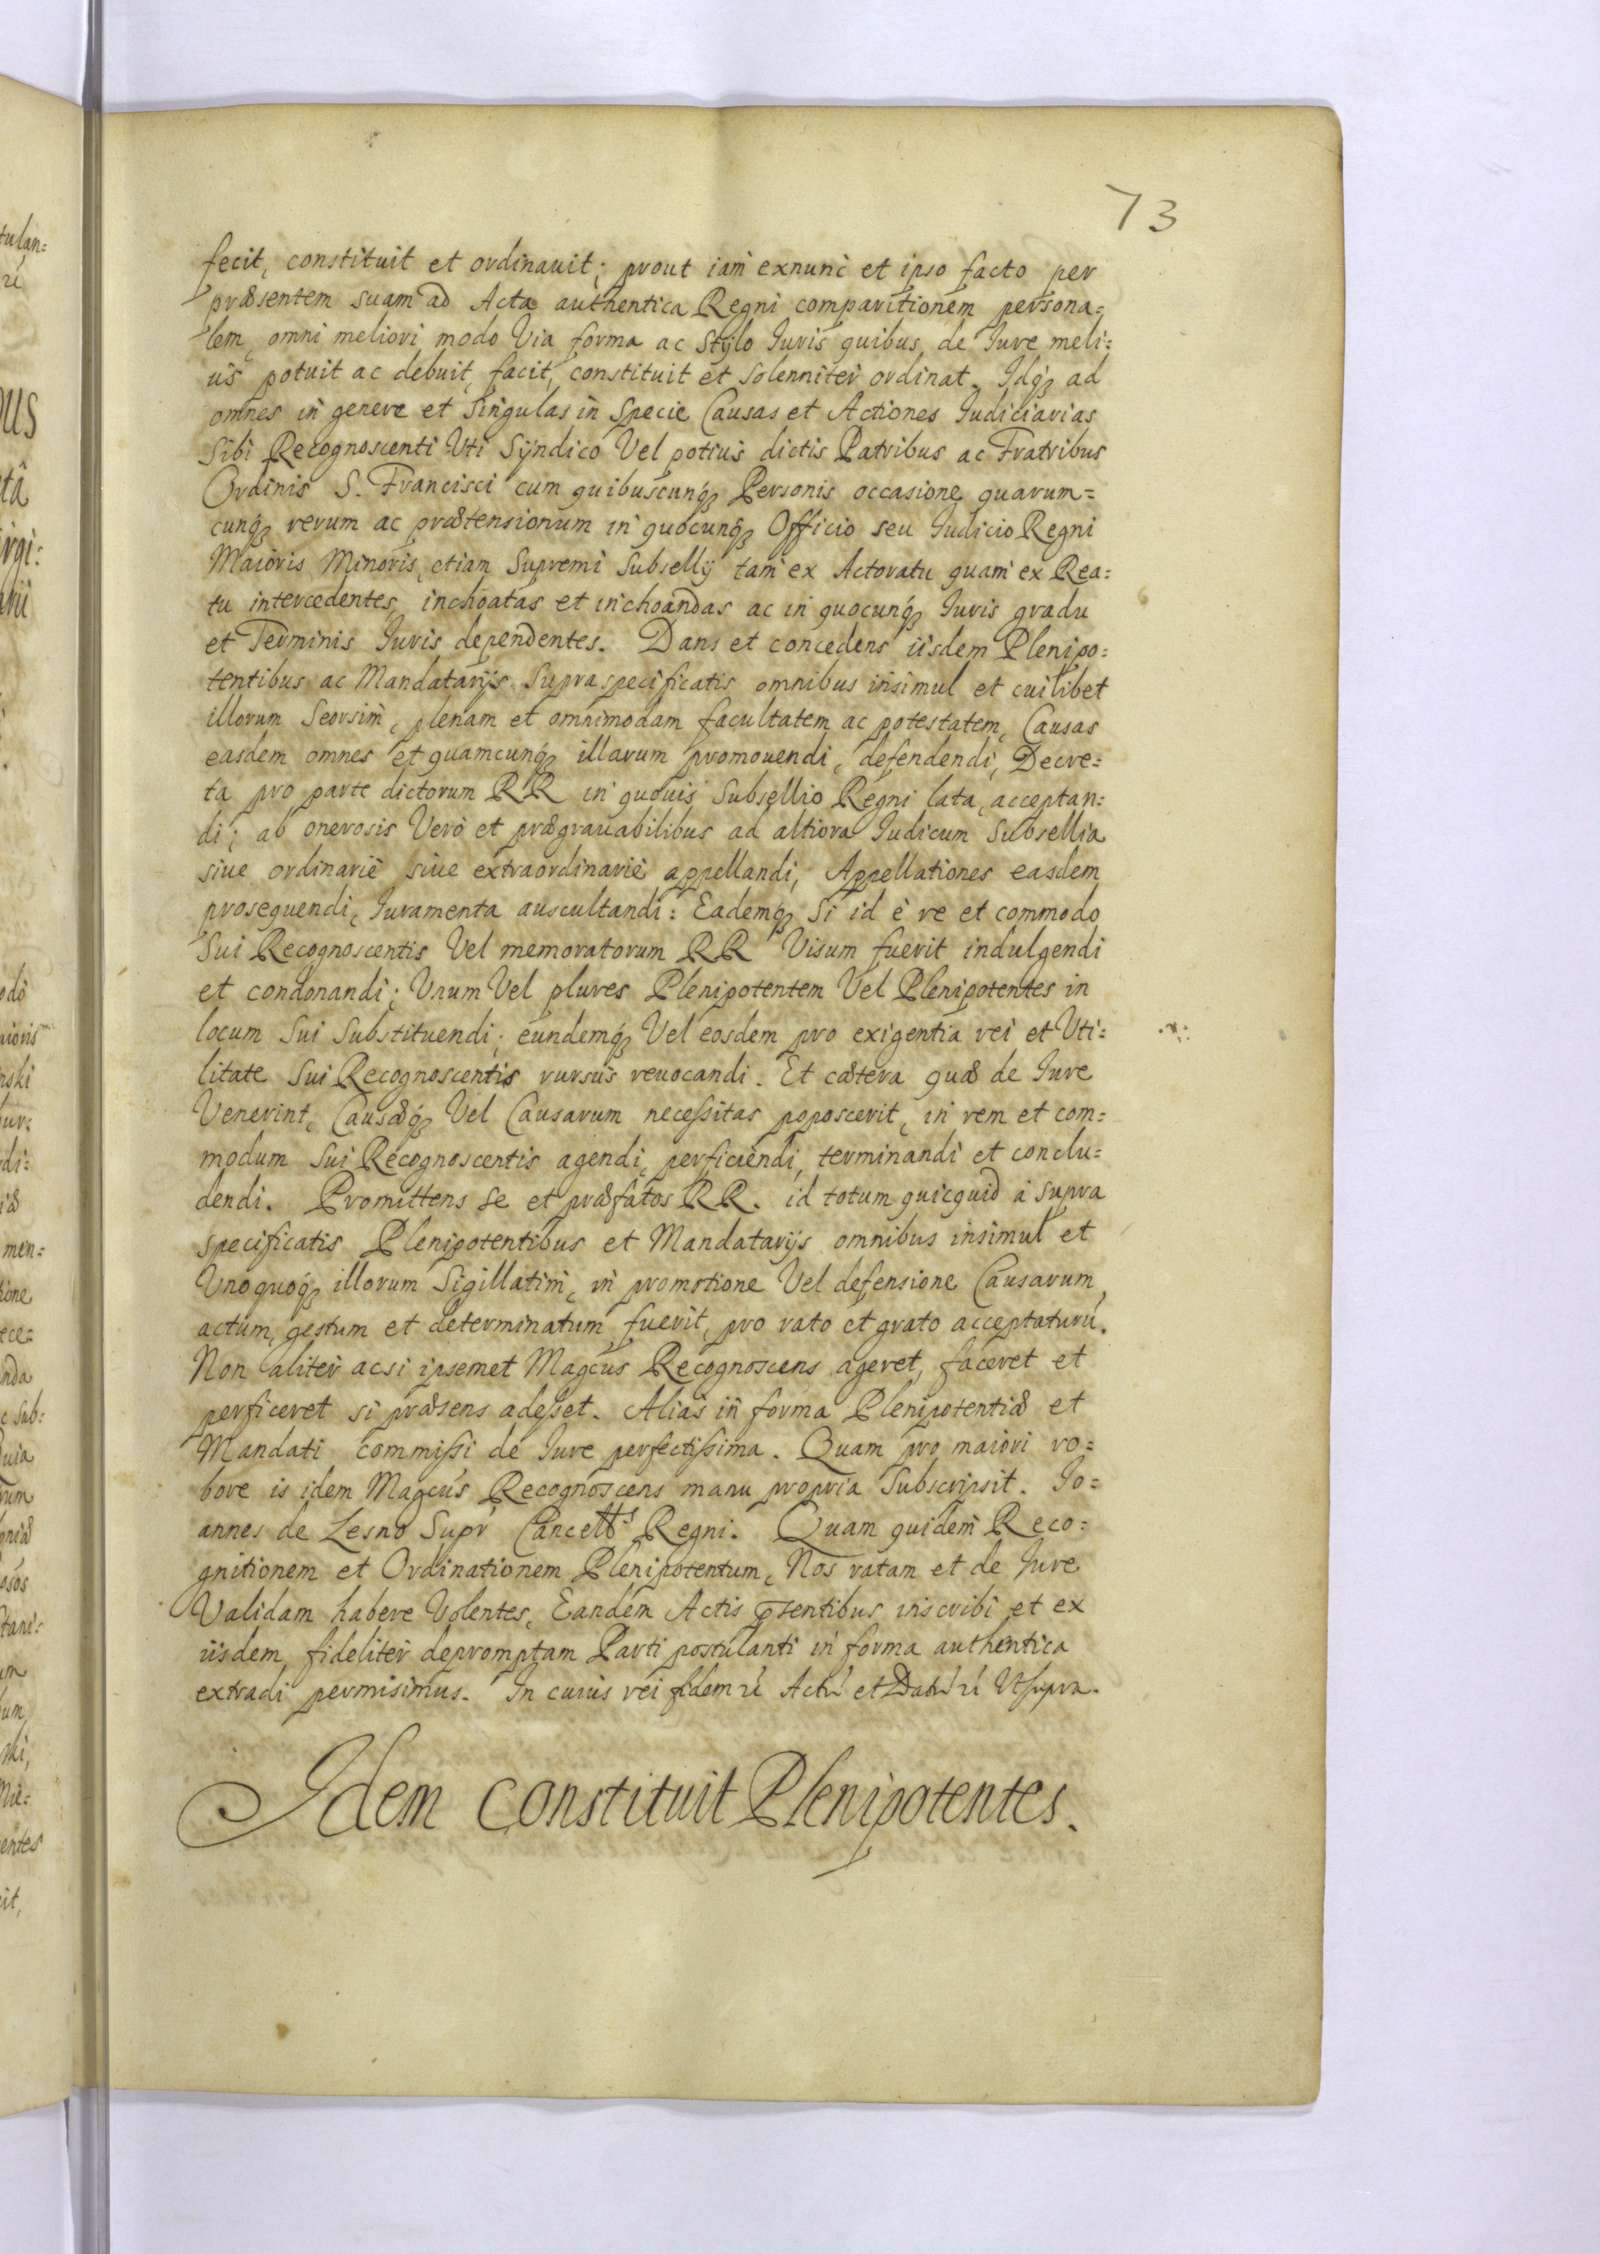 73
fecit, constituit et ordinauit; prout iam exnunc et ipso facto per
præsentem suam ad Acta authentica Regni comparitionem persona=
lem, omni meliori modo Via forma ac Stylo Iuris quibus de Iure meli=
us potuit ac debuit, facit, constituit et solenniter ordinat. Idq3 ad
omnes in genere et Singulas in Specie Causas et Actiones Iudiciarias
Sibi Recognoscenti Uti Syndico Vel potius dictis Patribus ac Fratribus
Ordinis S. Francisci cum quibuscunq3 Personis occasione quarum=
cunq3 rerum ac prætensionum in quocunq3 Officio seu Iudicio Regni
Maioris Minoris, etiam Supremi Subsellÿ tam ex Actoratu quam ex Rea=
tu intercedentes, inchoatas et inchoandas ac in quocunq3 Iuris gradu
et Terminis Iuris dependentes. Dans et concedens iisdem Plenipo=
tentibus ac Mandatarÿs Supraspecificatis omnibus insimul et cuilibet
illorum Seorsim, plenam et omnimodam facultatem ac potestatem, Causas
easdem omnes et quamcunq3 illarum promouendi, defendendi, Decre=
ta pro parte dictorum RR in quouis Subsellio Regni lata, acceptan=
di; ab onerosis Verò et prægrauabilibus ad altiora Iudicum Subsellia
siue ordinariè siue extraordinariè appellandi, Appellationes easdem
prosequendi, Iuramenta auscultandi: Eademq3 Si id è re et commodo
Sui Recognoscentis Vel memoratorum RR Visum fuerit indulgendi
et condonandi; Unum Vel plures Plenipotentem Vel Plenipotentes in
locum Sui Substituendi; eundemq3 Vel eosdem pro exigentia rei et Uti=
litate Sui Recognoscentis rursus reuocandi. Et cætera quæ de Iure
Venerint, Causæq3 Vel Causarum necessitas poposcerit, in rem et com=
modum Sui Recognoscentis agendi, perficiendi, terminandi et conclu=
dendi. Promittens se et præfatos RR. id totum quicquid à supra
specificatis Plenipotentibus et Mandatarijs omnibus insimul et
Unoquoq3 illorum Sigillatim, in promotione Vel defensione Causarum
actum, gestum et determinatum fuerit, pro rato et grato acceptaturú.
Non aliter acsi ipsemet Magcus Recognoscens ageret, faceret et
perficeret si præsens adesset. Alias in forma Plenipotentiæ et
Mandati commissi de Iure perfectissima. Quam pro maiori ro=
bore is idem Magcus Recognoscens manu propria Subscripsit. Io=
annes de Lesno Supr Cancells Regni. Quam quidem Reco=
gnitionem et Ordinationem Plenipotentum, Nos ratam et de Iure
Validam habere Volentes, Eandem Actis p̄sentibus inscribi et ex
iisdem fideliter depromptam Parti postulanti in forma authentica
extradi permisimus. In cuius rei fidem ú Actú et Datú ú Ut supra.
Idem Constituit Plenipotentes.